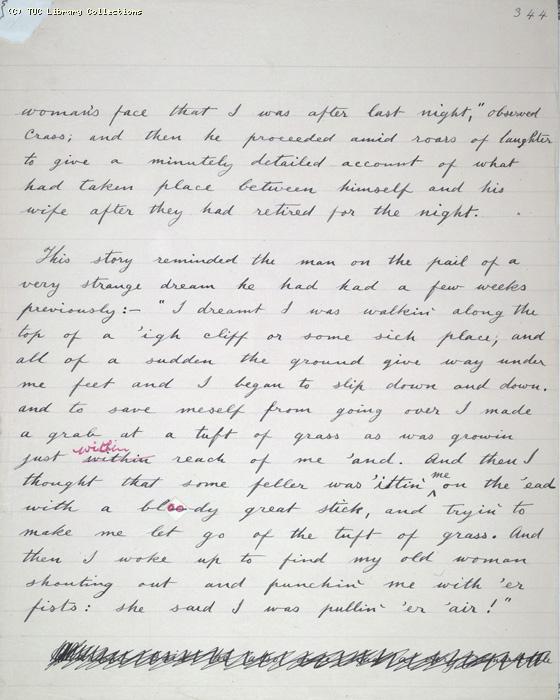 (C) TUC Library Collections
344
woman's face that I was after last night," observed
Crass; and then he proceeded amid roars of laughter
to give a minutely detailed account of what
had taken place between himself and his
wife after they had retired for the night.
This story reminded the man on the pail of a
very strange dream he had had a few weeks
previously:- "I dreamt I was walkin' along the
top of a 'igh cliff or some sich place, and
all of a sudden the ground give way under
me feet and I began to slip down and down.
and to save meself from going over I made
a grab at a tuft of grass as was growin
within
just within reach of me 'and. And then I
me
thought that some feller was 'ittin' on the 'ead
with a bloody great stick, and tryin' to
make me let go of the tuft of grass. And
then I woke up to find my old woman
shouting out and punchin' me with 'er
fists: she said I was pullin' 'er 'air!"